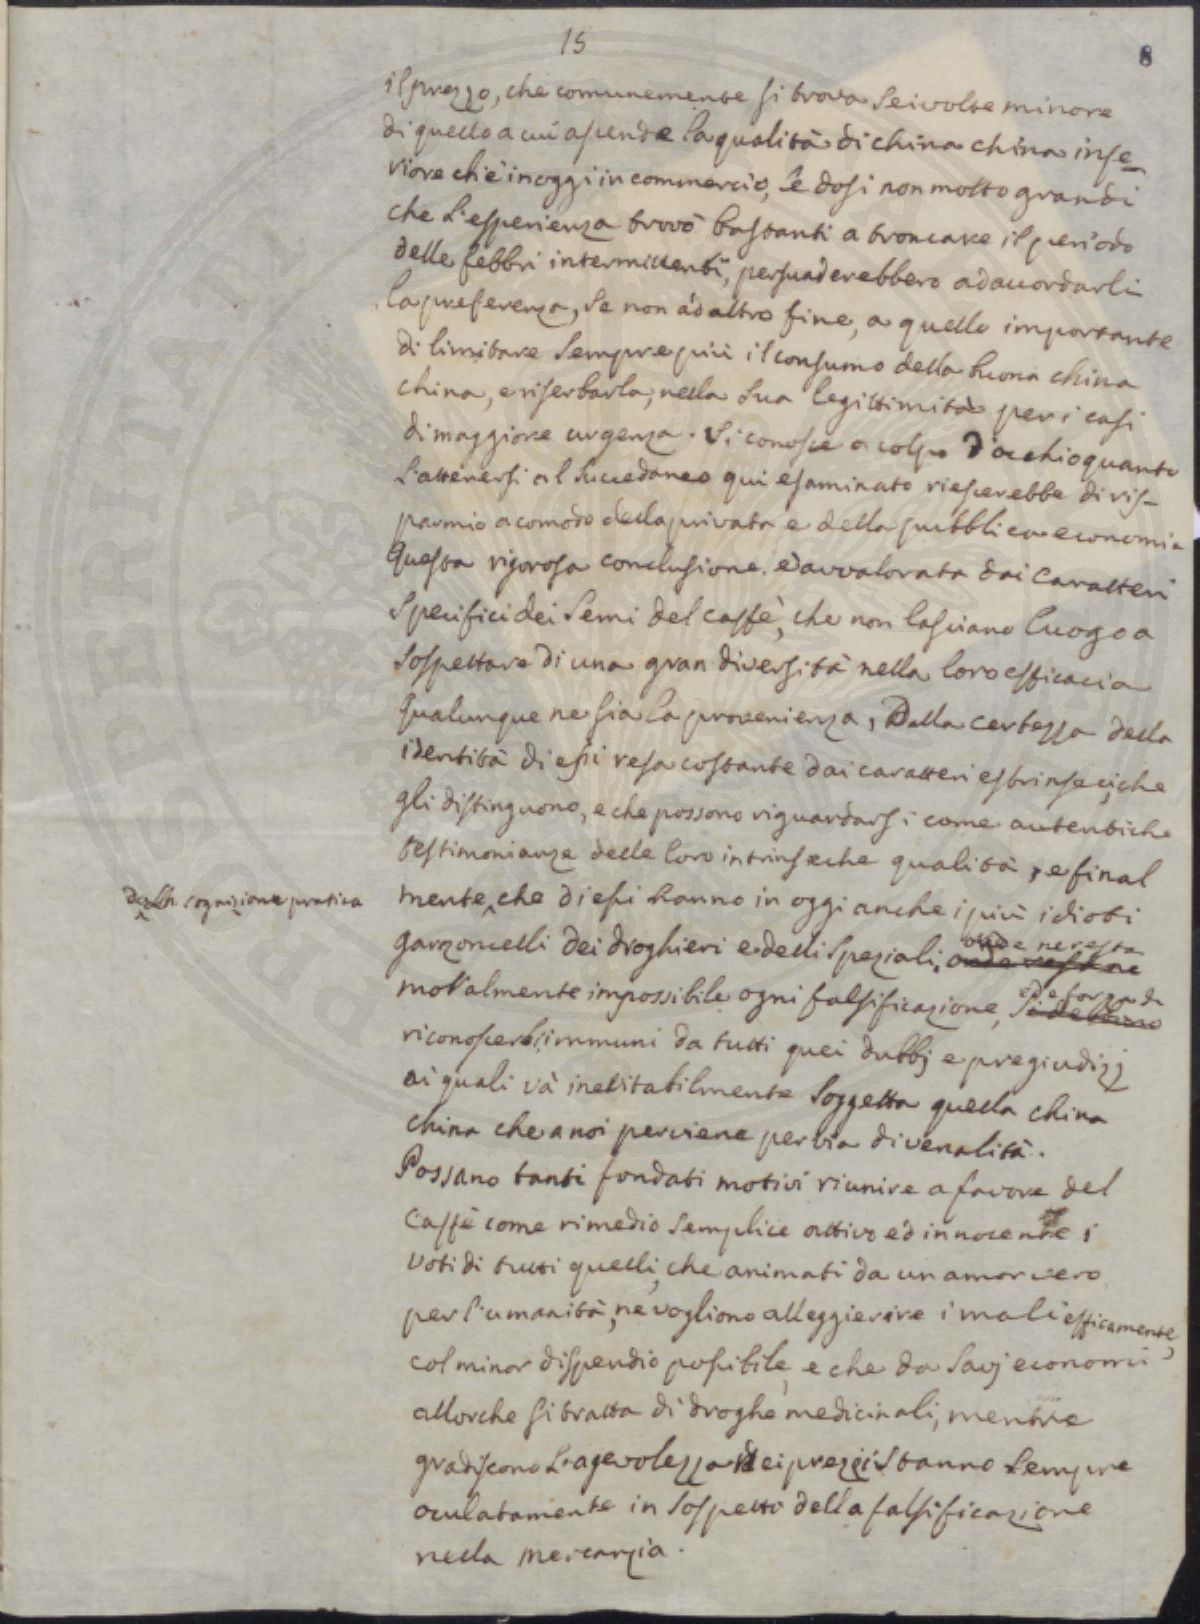 15
8
il prezzo, che comunemente si trova sei volte minore
di quello a cui ascende la qualità di china china infe-
riore ch'è in oggi in commercio, e dosi non molto grandi
che l'esperienza trovò bastanti a troncare il periodo
delle febbri intermittenti, persuaderebbero ad accordarli
la preferenza, se non ad altro fine, a quello importante
di limitare sempre più il consumo della buona china
china, e riserbarla, nella sua legittimità per i casi
di maggiore urgenza. Si conosce a colpo d'occhio quanto
l'attenersi al succedaneo qui esaminato riescerebbe di ris-
parmio a comodo della privata e della pubblica economia
Questa rigorosa conclusione è avvalorata dai caratteri
specifici dei semi del caffè, che non lasciano luogo a
sospettare di una gran diversità nella loro efficacia
qualunque ne sia la provenienza, Dalla certezza della
identità di essi resa costante dai caratteri estrinseci, che
gli distinguono, e che possono riguardarsi come autentiche
testimonianze delle loro intrinseche qualità, e final
dalla cognizione pratica
mente, che di essi hanno in oggi anche i più idioti
garzoncelli dei droghieri e delli speziali, onde ne resta
moralmente impossibile ogni falsificazione,
riconoscersi immuni da tutti quei dubbj e pregiudizj
ai quali và inevitabilmente soggetta quella china
china che a noi perviene per via di venalità.
Possano tanti fondati motivi riunire a favore del
Caffè come rimedio semplice attivo ed innocente i
voti di tutti quelli, che animati da un amor vero
per l'umanità, ne vogliono alleggierire i mali efficamente,
col minor dispendio possibile, e che da savj economi
allorche si tratta di droghe medicinali, mentre
gradiscono l'agevolezza dei prezzi stanno sempre
oculatamente in sospetto della falsificazione
nella mercanzia.